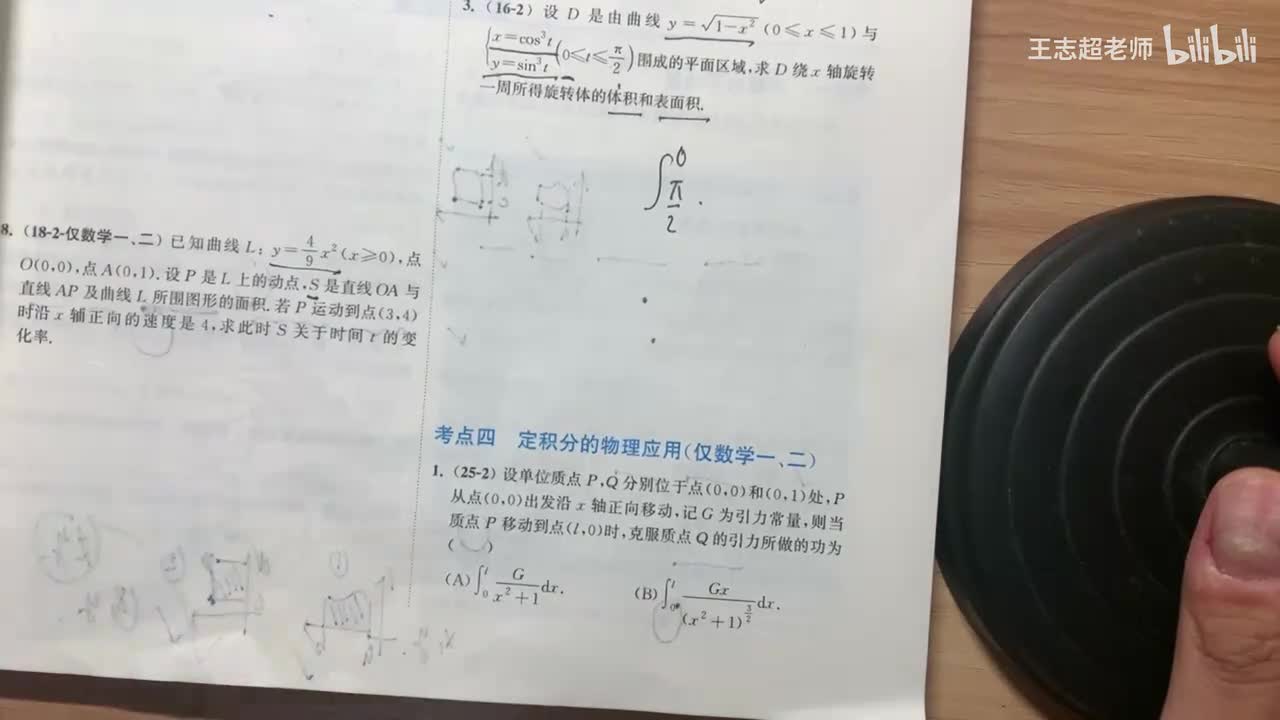 王志超老师 bilibili
3. (16-2) 设 D 是由曲线 y=√(1-x²) (0≤x≤1) 与
{x=cos³t, y=sin³t (0≤t≤π/2) 围成的平面区域,求 D 绕 x 轴旋转
一周所得旋转体的体积和表面积.
∫_{π/2}^{0}
8. (18-2-仅数学一、二) 已知曲线 L: y=4/9 x² (x≥0), 点
O(0,0), 点 A(0,1). 设 P 是 L 上的动点, S 是直线 OA 与
直线 AP 及曲线 L 所围图形的面积. 若 P 运动到点 (3,4)
时沿 x 轴正向的速度是 4, 求此时 S 关于时间 t 的变
化率.
考点四 定积分的物理应用(仅数学一、二)
1. (25-2) 设单位质点 P,Q 分别位于点(0,0)和(0,1)处, P
从点(0,0)出发沿 x 轴正向移动, 记 G 为引力常量, 则当
质点 P 移动到点(l,0)时, 克服质点 Q 的引力所做的功为
( )
(A) ∫_0^l G/(x²+1) dx. (B) ∫_0^l Gx/(x²+1)^{3/2} dx.